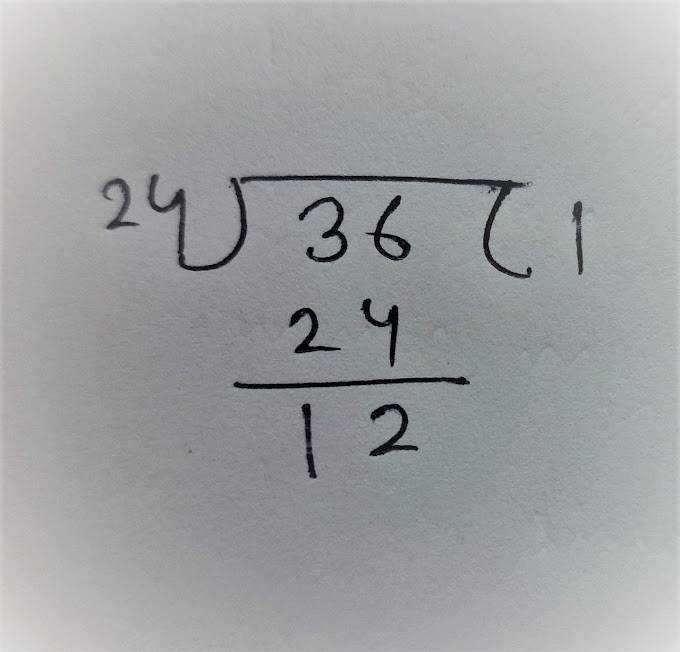 24) 36 ( 1
24
12